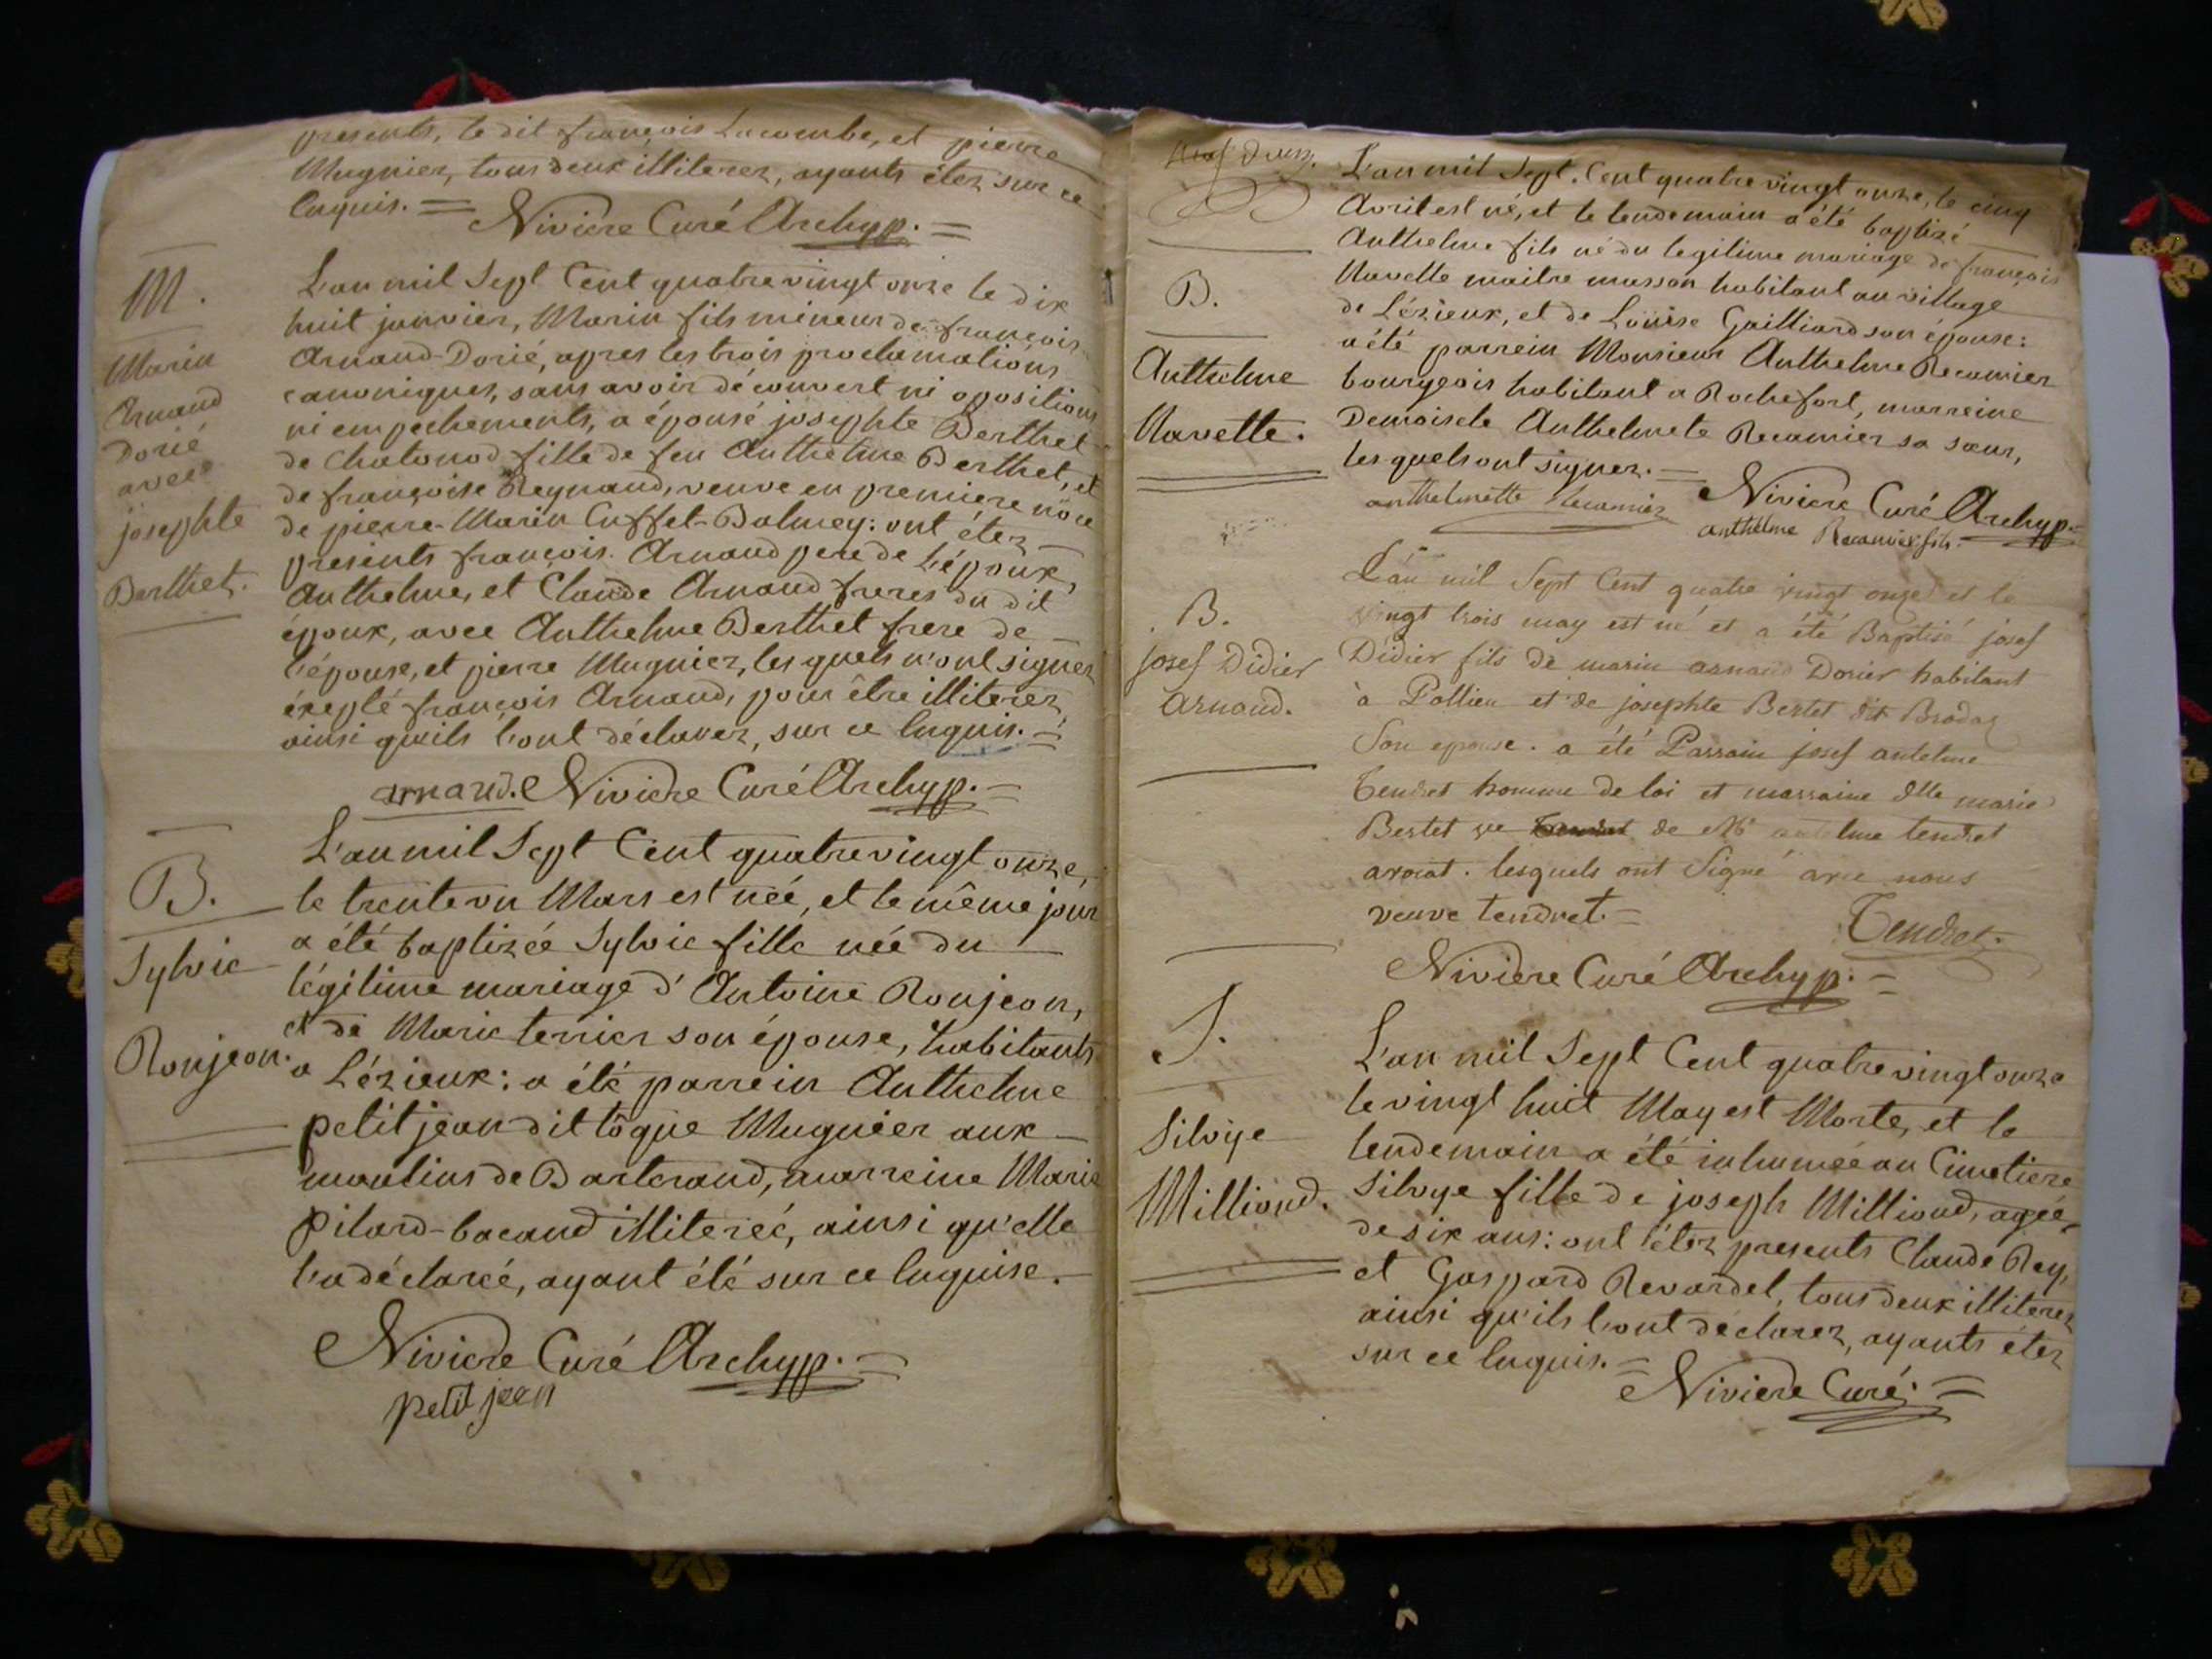 presents, le dit françois Lacombe, et pierre
Mugnier, tous deux illiterez, ayants étez sur ce
Enquis. = Niviere Curé Archyp. =
M.
Marin
Arnaud
Dorié
avec
josephte
Berthet.
L'an mil Sept Cent quatre vingt onze le dix
huit janvier, Marin fils mineur de françois
Arnaud-Dorié, apres les trois proclamations
canoniques, sans avoir découvert ni opositions
ni empechements, a épousé josephte Berthet
de Chatonod fille de feu Anthelme Berthet, et
de françoise Reynaud, veuve en premiere nôce
de pierre-Marin Cuffet-Balmey: ont étez
presents françois Arnaud pere de L'époux,
Anthelme, et Claude Arnaud freres du dit
époux, avec Anthelme Berthet frere de
l'épouse, et pierre Mugnier, les quels n'ont signez
éxepté françois Arnaud, pour être illiterez
ainsi qu'ils l'ont déclarez, sur ce Enquis. =
arnaud. Niviere Curé Archyp. =
B.
Sylvie
Ronjeon.
L'an mil Sept Cent quatre vingt onze,
le trente un Mars est néé, et le même jour
a été baptizée Sylvie fille née du
légitime mariage d'Antoine Ronjeon,
et de Marie terrier son épouse, habitants
a Lézieux: a été parrein Anthelme
petitjean dit tôque Mugnier aux
moulins de Barterand, marreine Marie
Pilard-bacand illiterée, ainsi qu'elle
l'a déclarée, ayant été sur ce Enquise.
Niviere Curé Archyp. =
petit jean
L'an mil Sept. Cent quatre vingt onze, le cinq
Avril est né, et le lendemain a été baptizé
Anthelme fils né du legitime mariage de françois
Navette maitre masson habitant au village
de Lézieux, et de Loüise Gailliard son épouse:
a été parrein Monsieur Anthelme Recamier
bourgeois habitant a Rochefort, marreine
Demoisele Anthelmete Recamier sa sœur,
les quels ont signez. =
B.
Anthelme
Navette.
anthelmette Recamier Niviere Curé Archyp. =
anthelme Recamier fils.
B.
josef Didier
arnaud.
L'an mil Sept Cent quatre vingt onze et le
vingt trois may est né et a été Baptisé josef
Didier fils de marin arnaud Dorier habitant
à Pollieu et de josephte Bertet dit Brodaz
Son epouse. a été Parrain josef antelme
Tendret homme de loi et marraine dlle marie
Bertet ve de Mr antelme tendret
avocat. lesquels ont Signé avec nous
veuve tendret. =
Tendret.
Niviere Curé Archyp. =
S.
Silvye
Milliond.
L'an mil Sept Cent quatre vingt onze
le vingt huit May est Morte, et le
lendemain a été inhumée au Cimetiere
Silvye fille de joseph Milliond, agée
de six ans: ont étez presents Claude Rey,
et Gaspard Revardel, tous deux illiterez
ainsi qu'ils l'ont déclarez, ayants étez
sur ce Enquis. =
Niviere Curé. =